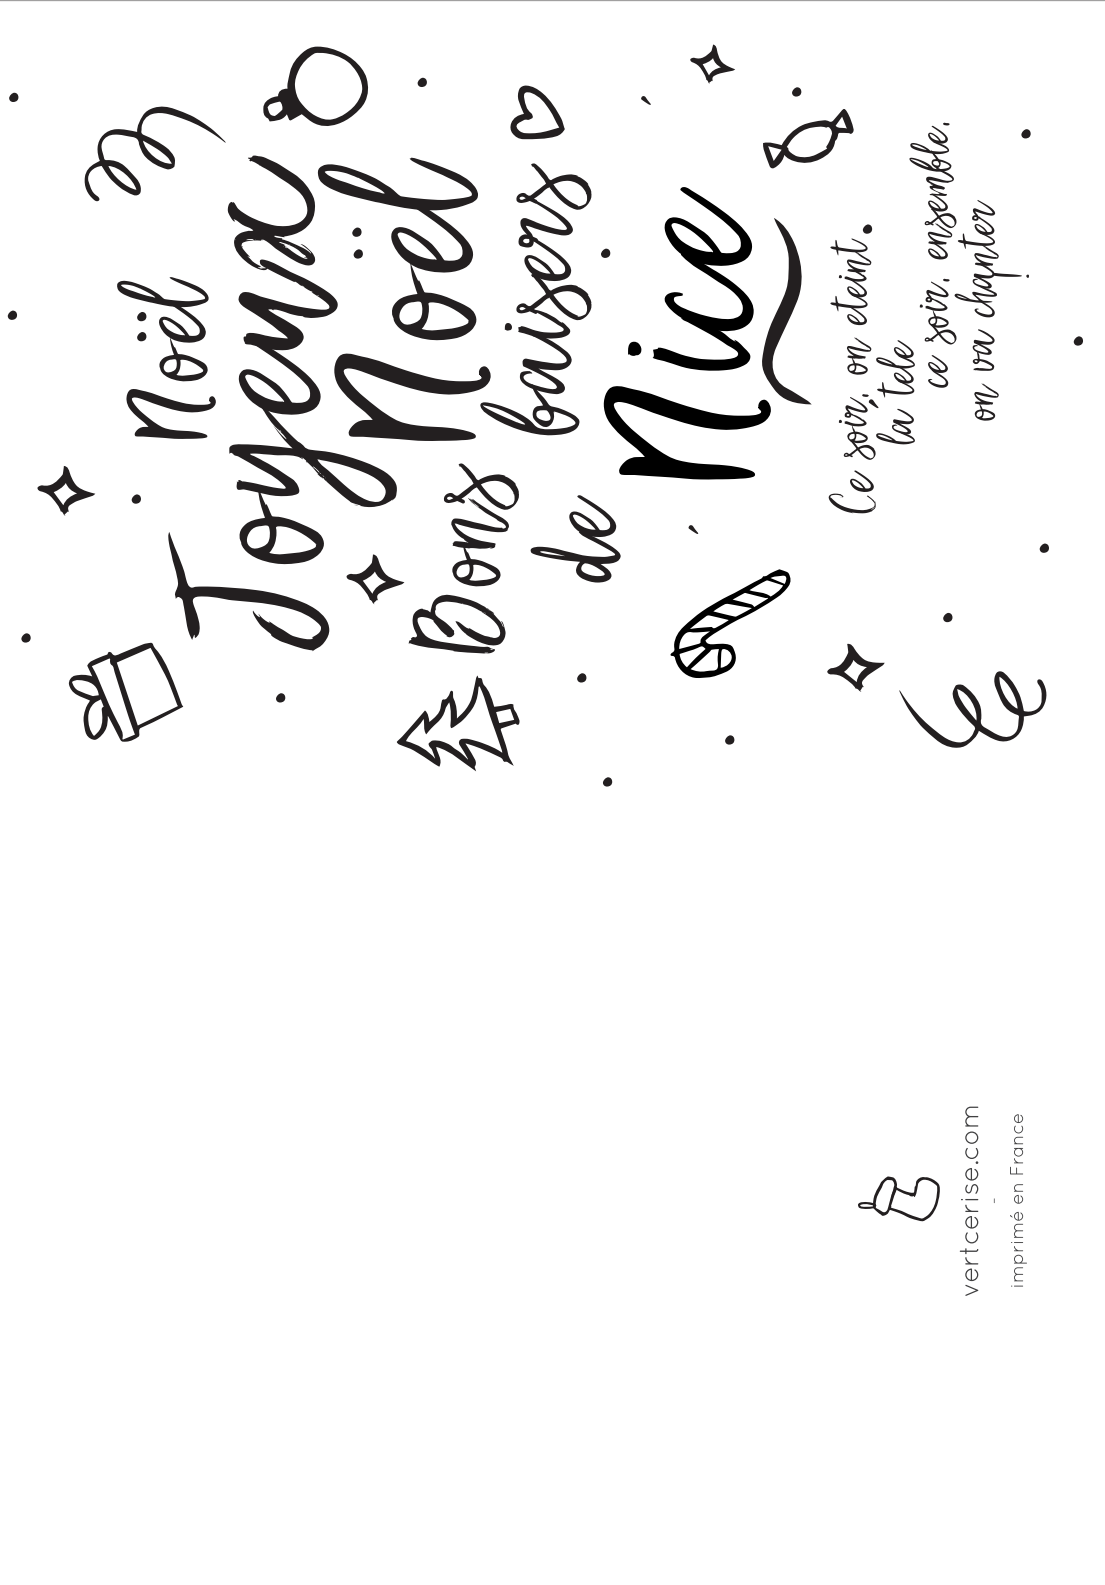 noël
Joyeux
Noël
Bons baisers
de
Nice
Ce soir, on eteint
la télé
ce soir, ensemble,
on va chanter
!
vertcerise.com
-
imprimé en France